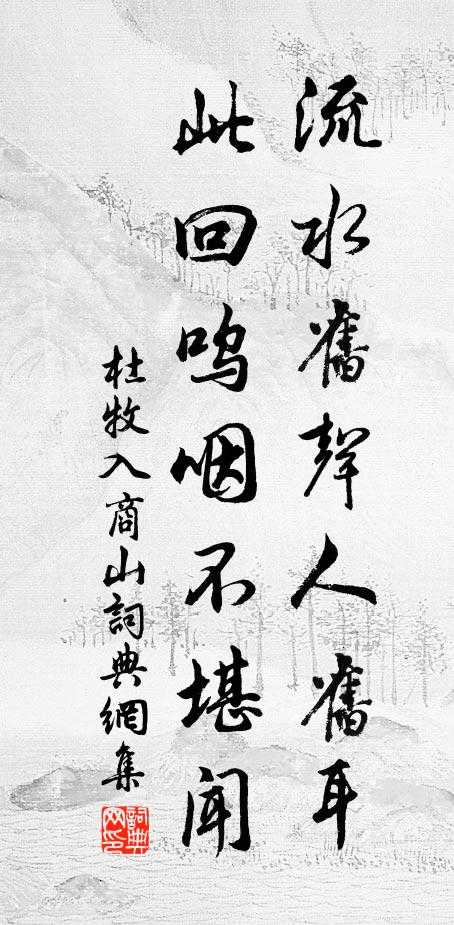 流水舊聲人舊耳
此回嗚咽不堪聞
杜牧入商山詞典網集
詞典网印